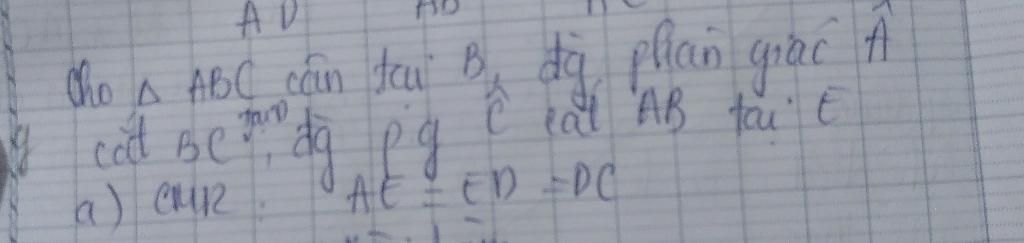 A D AB
Cho △ ABC cân tại B, đg phân giác Â
cắt BC tại D, đg p.g Ĉ cắt AB tại E
a) CMR. AE = ED = DC